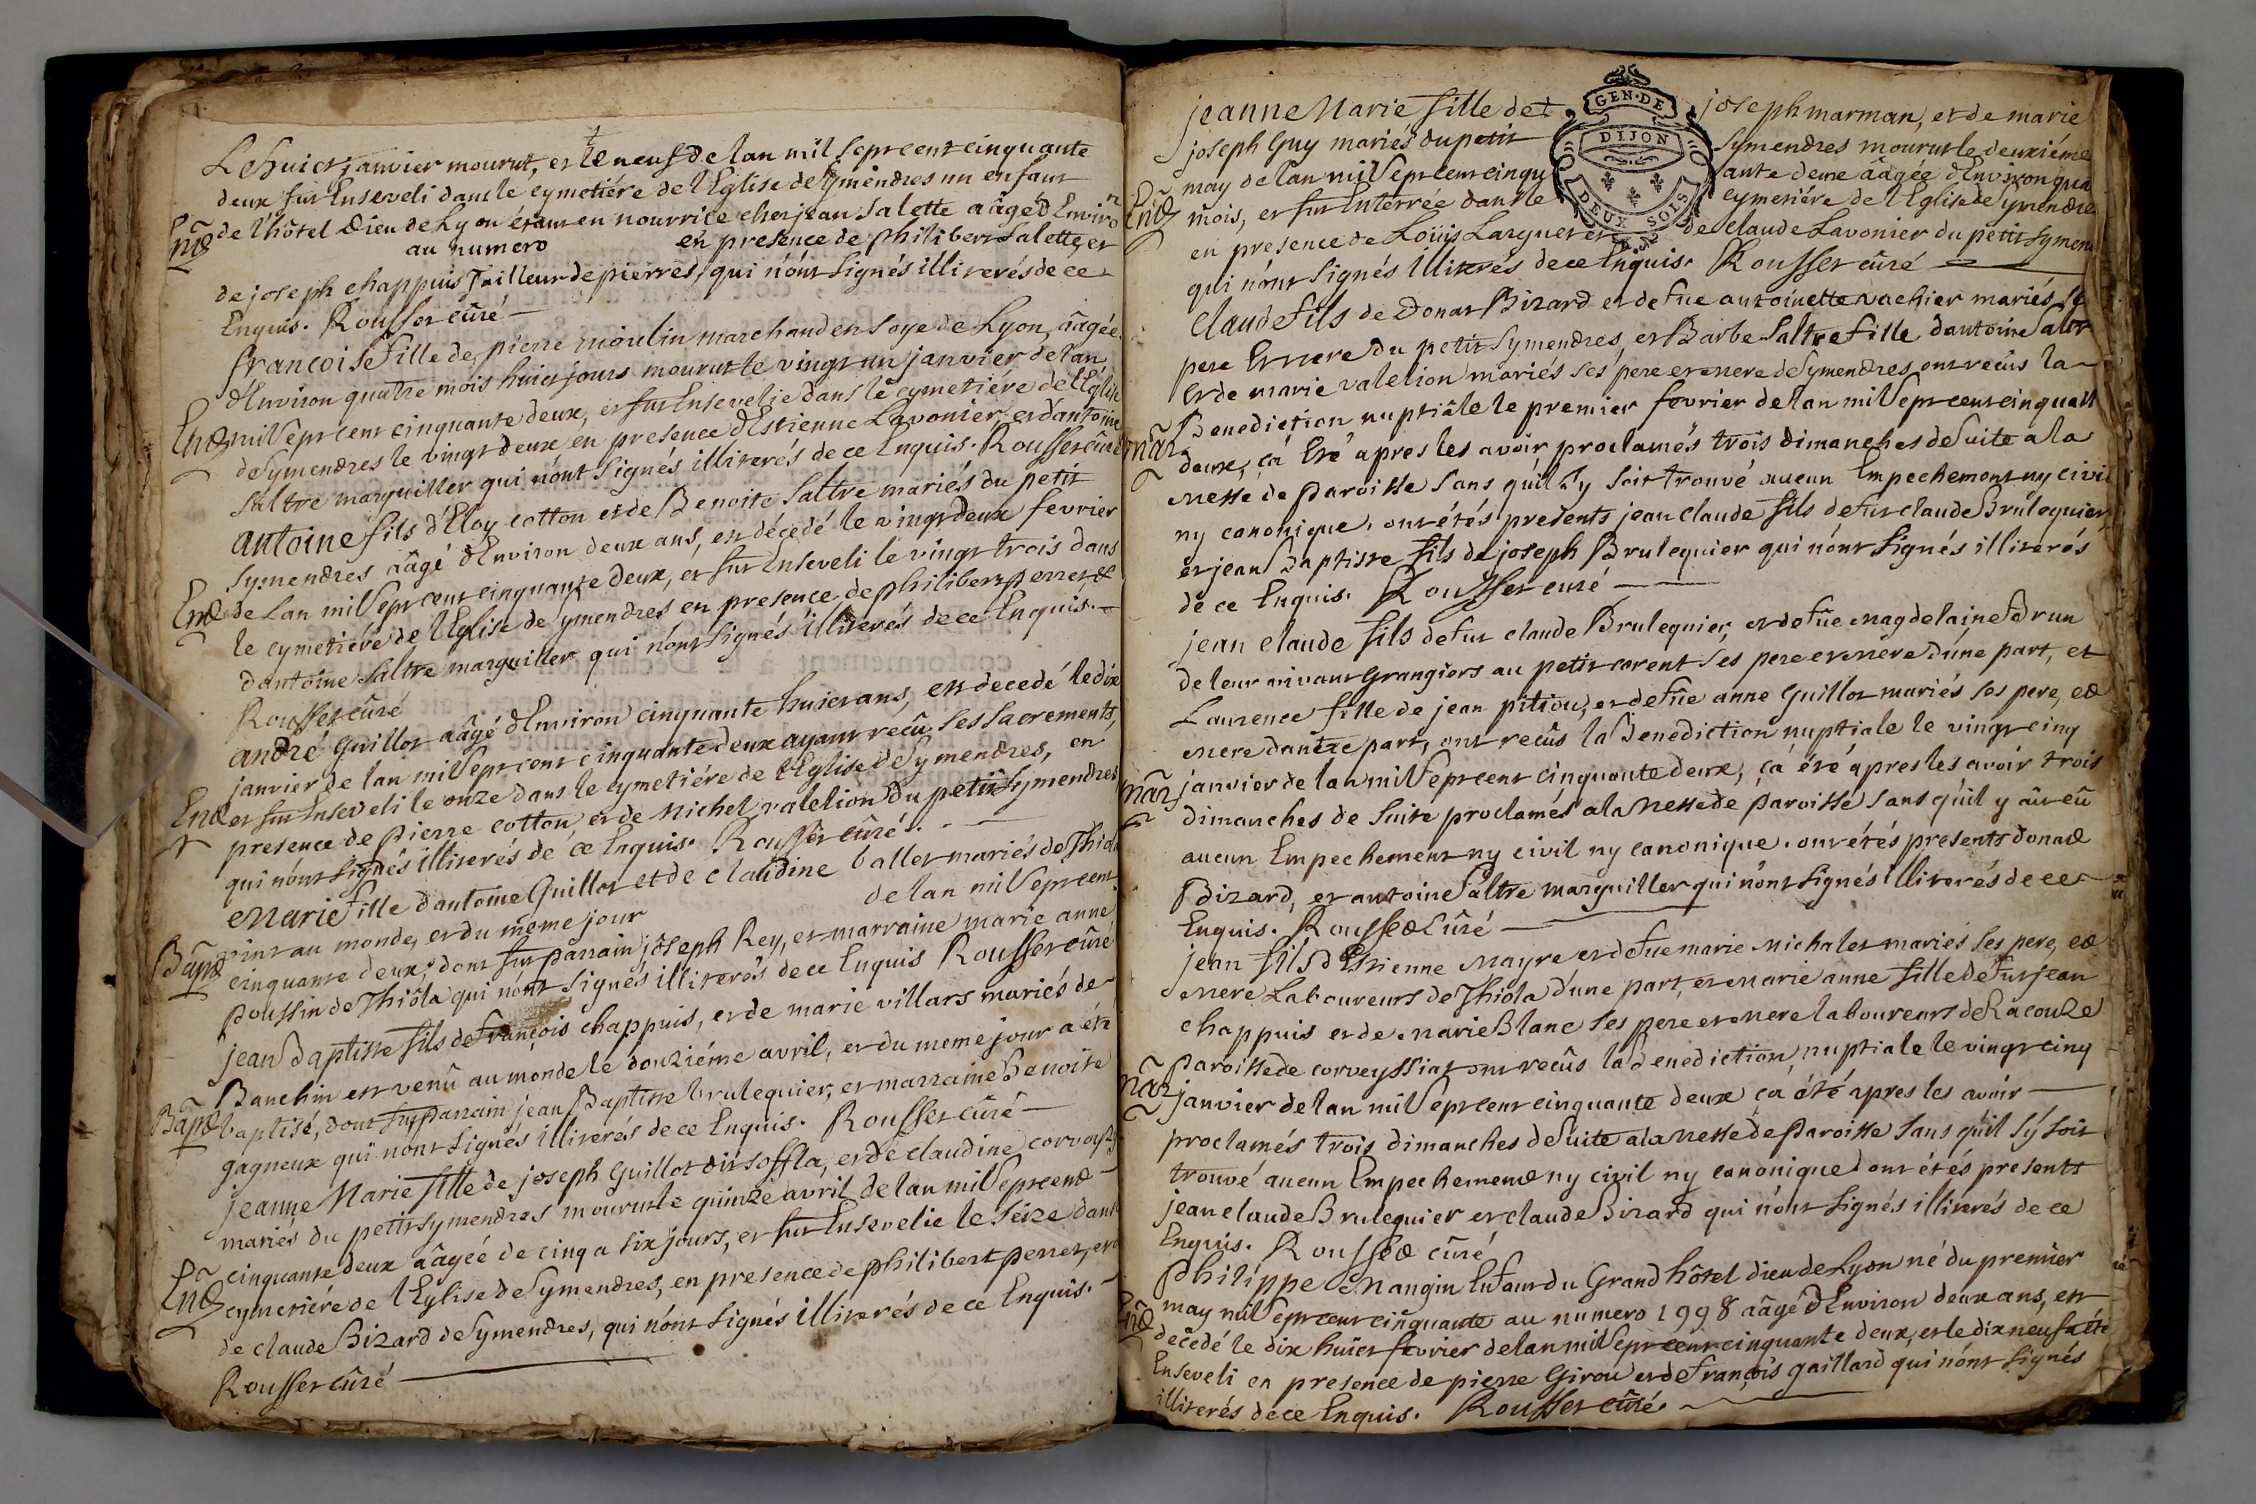 Le huict janvier mourut, et le neuf de lan mil sept cent cinquante
deux fut Enseveli dans le cymetiére de l'Eglise de Symendres un enfant
Ense de l'hôtel Dieu de Lyon étant en nourrice chez jean Salette aâgé d'Environ
au numero en presence de philibert Salette, et
de joseph chappuis Tailleur de pierres, qui n'ónt signés illiterés de ce
Enquis. Rousset cûré
francoise fille de pierre moulin marchand en soye de Lyon, aâgée
d'Environ quatre mois huict jours mourut le vingt un janvier de lan
Ense mil sept cent cinquante deux, et fut Ensevelie dans le cymetiére de l'Eglise
de Symendres le vingt deux, en presence d'Estienne Lavonier, et d'antoine
Saltre marguiller qui n'ónt signés illiterés de ce Enquis. Rousset cûré
antoine fils d'Eloy cotton et de Benoite Saltre mariés du petit
Symendres aâgé d'Environ deux ans, est décedé le vingt deux fevrier
Ense de Lan mil sept cent cinquante deux, et fut Enseveli le vingt trois dans
le cymetiére de l'Eglise de Symendres en presence de philibert perret et
d'antoine Saltre marguiller qui n'ónt signés illiterés de ce Enquis.
Rousset cûré
andré Guillot aâgé d'Environ cinquante huict ans, est decedé le dix
janvier de lan mil sept cent cinquante deux ayant recû ses sacrements,
Ense et fut Enseveli le onze dans le cymetiére de l'Eglise de Symendres, en
presence de pierre cotton, et de Michel valetion du petit Symendres
qui n'ónt signés illiterés de ce Enquis. Rousset cûré.
Marie fille d'antoine Guillot et de claudine ballet mariés de Thiola
vint au monde, et du même jour de lan mil sept cent
Bape cinquante deux, dont fut parrain joseph Rey, et marraine marie anne
poussin de Thiôla qui n'ónt signés illiterés de ce Enquis Rousset cûré
jean Baptiste fils de françois chappuis, et de marie villars mariés de
Banchin est venû au monde le douziéme avril, et du meme jour a été
Bape baptisé, dont fut parrain jean Baptiste brulequier, et marraine Benoite
gagneux qui nónt signés illiterés de ce Enquis. Rousset cûré
jeanne Marie fille de joseph Guillot dit soffla, et de claudine
mariés du petit symendres mourut le quinze avril de lan mil sept cent
Ense cinquante deux aâgeé de cinq a six jours, et fut Ensevelie le seize dans
cymetiére de l'Eglise de Symendres, en presence de philibert perret, et
de claude Bizard de Symendres, qui n'ónt signés illiterés de ce Enquis.
Rousset cûré
jeanne Marie fille de joseph marman, et de marie
joseph Guy mariés du petit Symendres mourut le deuxiéme
may de lan mil sept cent cinqu ante deux aâgée d'Environ qua
Ense mois, et fut Enterrée dans le cymetiére de l'Eglise de Symendre
en presence de Loüis Larguet et de claude Lavonier du petit Symen
qui n'ónt signés Illiterés de ce Enquis. Rousset cûré
GEN·DE
DIJON
DEUX SOLS
claude fils de Donat Bizard et de fue antoinette vachier mariés se
pere Et mere du petit Symendres, et Barbe Saltre fille d'antoine Saltr
Et de marie valetion mariés ses pere et mere de Symendres, ont recûs la
Benediction nuptiâle le premier fevrier de lan mil sept cent cinquant
Mar deux, ça Eté apres les avoir proclamés trois dimanches de suite a la
Messe de paroisse sans qu'il s'y soit trouvé aucun Empechement ny civil
ny canonique. ont étés presents jean claude fils de fut claude Brulequier,
et jean Baptiste fils de joseph Brulequier qui n'ónt signés illiterés
de ce Enquis. Rousset curé
jean claude fils de fut claude Brulequier, et de fûe Magdelaine Brun
de leur vivant Grangiers au petit corent ses pere et mére d'une part, et
Laurence fille de jean pitiou, et de fûe anne Guillot mariés ses pere, et
mere d'autre part, ont recûs la Benediction nuptiale le vingt cinq
Mar janvier de lan mil sept cent cinquante deux, ça été apres les avoir trois
dimanches de suite proclamés a la Messe de paroisse sans qu'il y ait eû
aucun Empechement ny civil ny canonique. ont étés presents Donat
Bizard, et antoine Saltre marguiller qui n'ont signés Illiterés de ce
Enquis. Rousset Cûré
jean fils d'Estienne Mayre et de fue marie Michalet mariés ses pere, et
mere Laboureurs de Thiola d'une part, et Marie anne fille de fut jean
chappuis et de Marie Blanc ses pere et mere laboureurs de Racouze
paroisse de corveyssiat ont recûs la Benediction nuptiale le vingt cinq
Mar janvier de lan mil sept cent cinquante deux ça été apres les avoir
proclamés trois dimanches de suite a la Messe de paroisse sans qu'il s'y soit
trouvé aucun Empechement ny civil ny canonique ont étés presents
jean claude Brulequier et claude Bizard qui n'ónt signés illiterés de ce
Enquis. Rousset cûré
philippe Mangin Enfant du Grand hôtel dieu de Lyon né du premier
may mil sept cent cinquante au numero 1998 aâgé d'Environ deux ans, est
Ense decedé le dix huict fevrier de lan mil sept cent cinquante deux, et le dix neuf a été
Enseveli en presence de pierre Girou et de françois gaillard qui n'ónt signés
illiterés de ce Enquis. Rousset cûré.